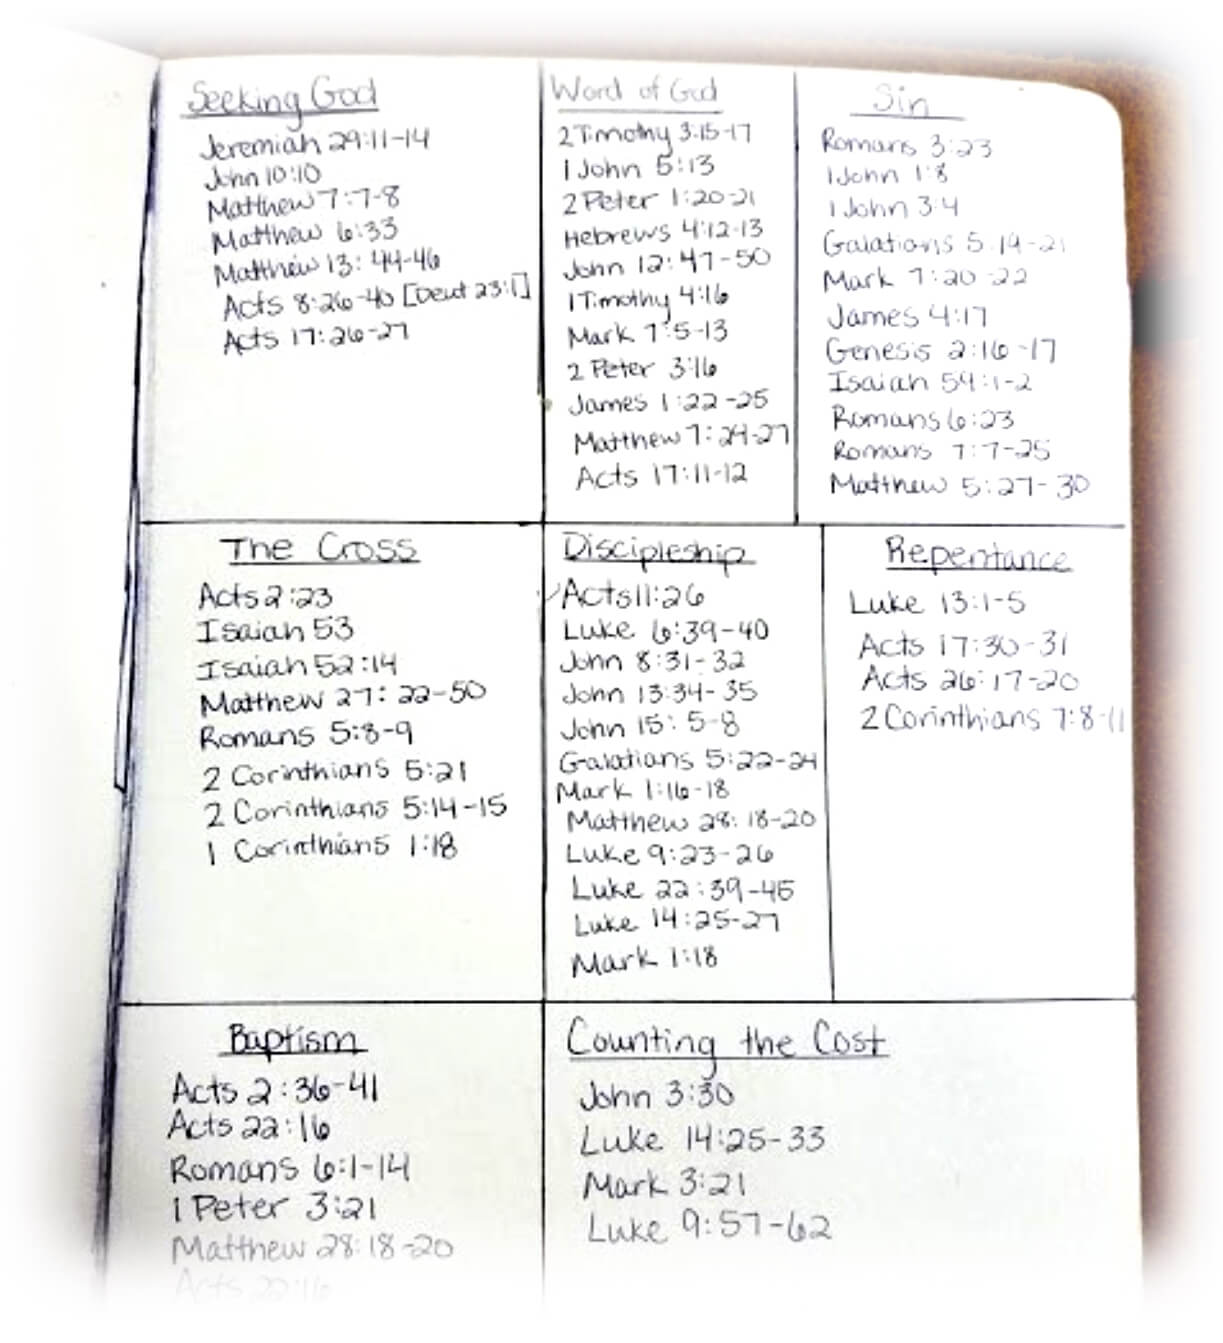 Seeking God
Jeremiah 29:11-14
John 10:10
Matthew 7:7-8
Matthew 6:33
Matthew 13:44-46
Acts 8:26-40 [Deut 23:1]
Acts 17:26-27
Word of God
2 Timothy 3:15-17
1 John 5:13
2 Peter 1:20-21
Hebrews 4:12-13
John 12:47-50
1 Timothy 4:16
Mark 7:5-13
2 Peter 3:16
James 1:22-25
Matthew 7:24-27
Acts 17:11-12
Sin
Romans 3:23
1 John 1:8
1 John 3:4
Galatians 5:19-21
Mark 7:20-22
James 4:17
Genesis 2:16-17
Isaiah 59:1-2
Romans 6:23
Romans 7:7-25
Matthew 5:27-30
The Cross
Acts 2:23
Isaiah 53
Isaiah 52:14
Matthew 27:22-50
Romans 5:8-9
2 Corinthians 5:21
2 Corinthians 5:14-15
1 Corinthians 1:18
Discipleship
Acts 11:26
Luke 6:39-40
John 8:31-32
John 13:34-35
John 15:5-8
Galatians 5:22-24
Mark 1:16-18
Matthew 28:18-20
Luke 9:23-26
Luke 22:39-45
Luke 14:25-27
Mark 1:18
Repentance
Luke 13:1-5
Acts 17:30-31
Acts 26:17-20
2 Corinthians 7:8-11
Baptism
Acts 2:36-41
Acts 22:16
Romans 6:1-14
1 Peter 3:21
Matthew 28:18-20
Acts 22:16
Counting the Cost
John 3:30
Luke 14:25-33
Mark 3:21
Luke 9:57-62